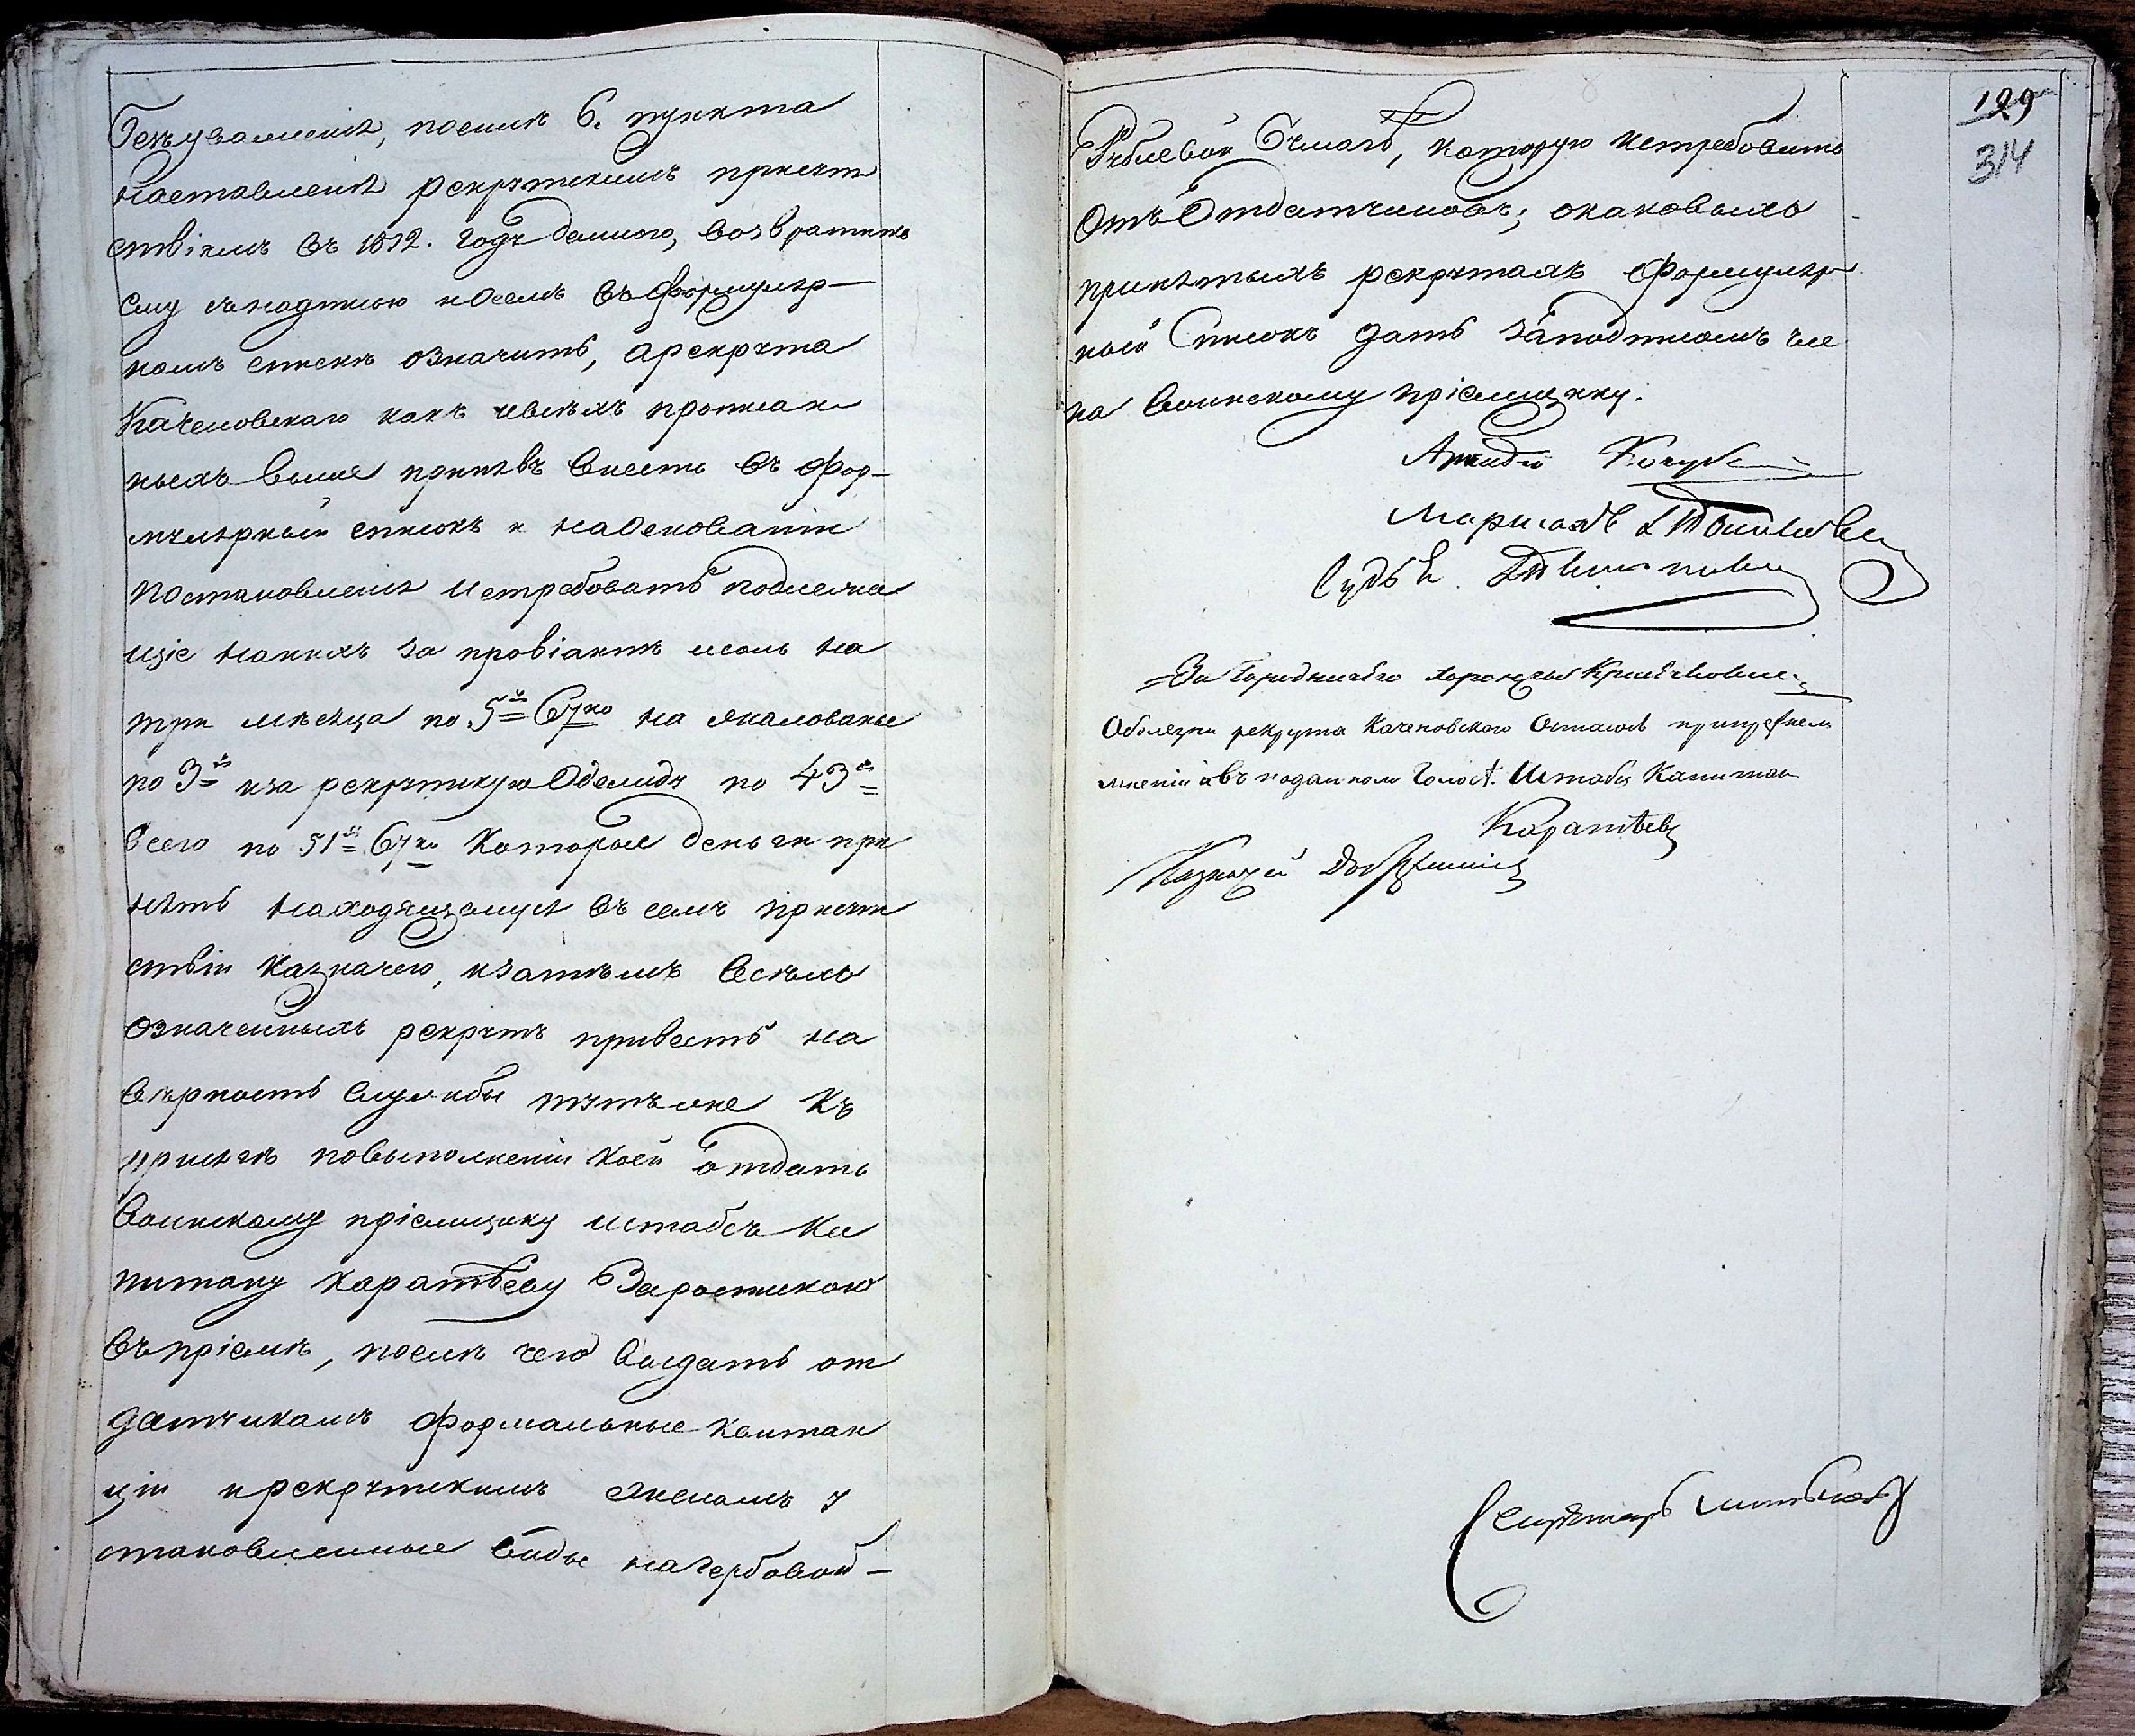 уваженія, посилѣ 6. пункта
наставленія рекрутскимъ присут
ствіямъ въ 1812. году даннаго, возвратить
ему съ надписью и о семъ въ формуляр-
номъ спискѣ означить, а рекрута
Каченовскаго какъ и всѣхъ прописан
ныхъ выше принявъ внесть въ фор-
мулярный списокъ и на основаніи
постановленія истребовать подлежа
щіе на нихъ за провіантъ и соль на
три мѣсяца по 5 67 ко на жалованье
по 3 и за рекрутскую одежду по 43
всего по 51 67 ко которые деньги при
нять находящемуся въ семъ присут
ствіи казначею, и затѣмъ всѣхъ
означенныхъ рекрутъ привесть на
вѣрность службы тутъ же къ
присягѣ по выполненіи коей отдать
воинскому пріемщику штабсъ Ка
питану Каратѣеву за роспискою
въ пріемѣ, послѣ чего выдать от
датчикамъ формальные квитан
ціи и рекрутскимъ женамъ у
становленные виды на гербовой-
129
314
Рублевой бумагѣ, которую истребовать
отъ отдатчиковъ; о каковыхъ
принятыхъ рекрутахъ формуляр
ный списокъ дать за подписомъ чле
на воинскому пріемщику.
Маршалъ
Судья
За Городничаго
О болезни рекрута Каченовскаго остаюсь при прежнем
мнении и въ поданном голосѣ. Штабсъ Капитан
Каратѣевъ
Казначей
Секретарь